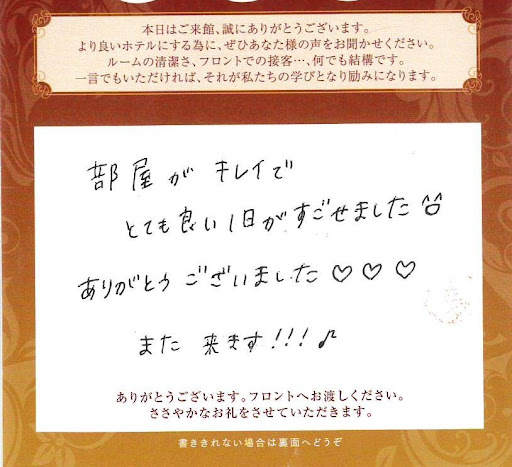 本日はご来館、誠にありがとうございます。
より良いホテルにする為に、ぜひあなた様の声をお聞かせください。
ルームの清潔さ、フロントでの接客…、何でも結構です。
一言でもいただければ、それが私たちの学びとなり励みになります。
部屋が キレイで
とても良い1日がすごせました
ありがとう ございました♡♡♡
また 来ます!!!♪
ありがとうございます。フロントへお渡しください。
ささやかなお礼をさせていただきます。
書ききれない場合は裏面へどうぞ